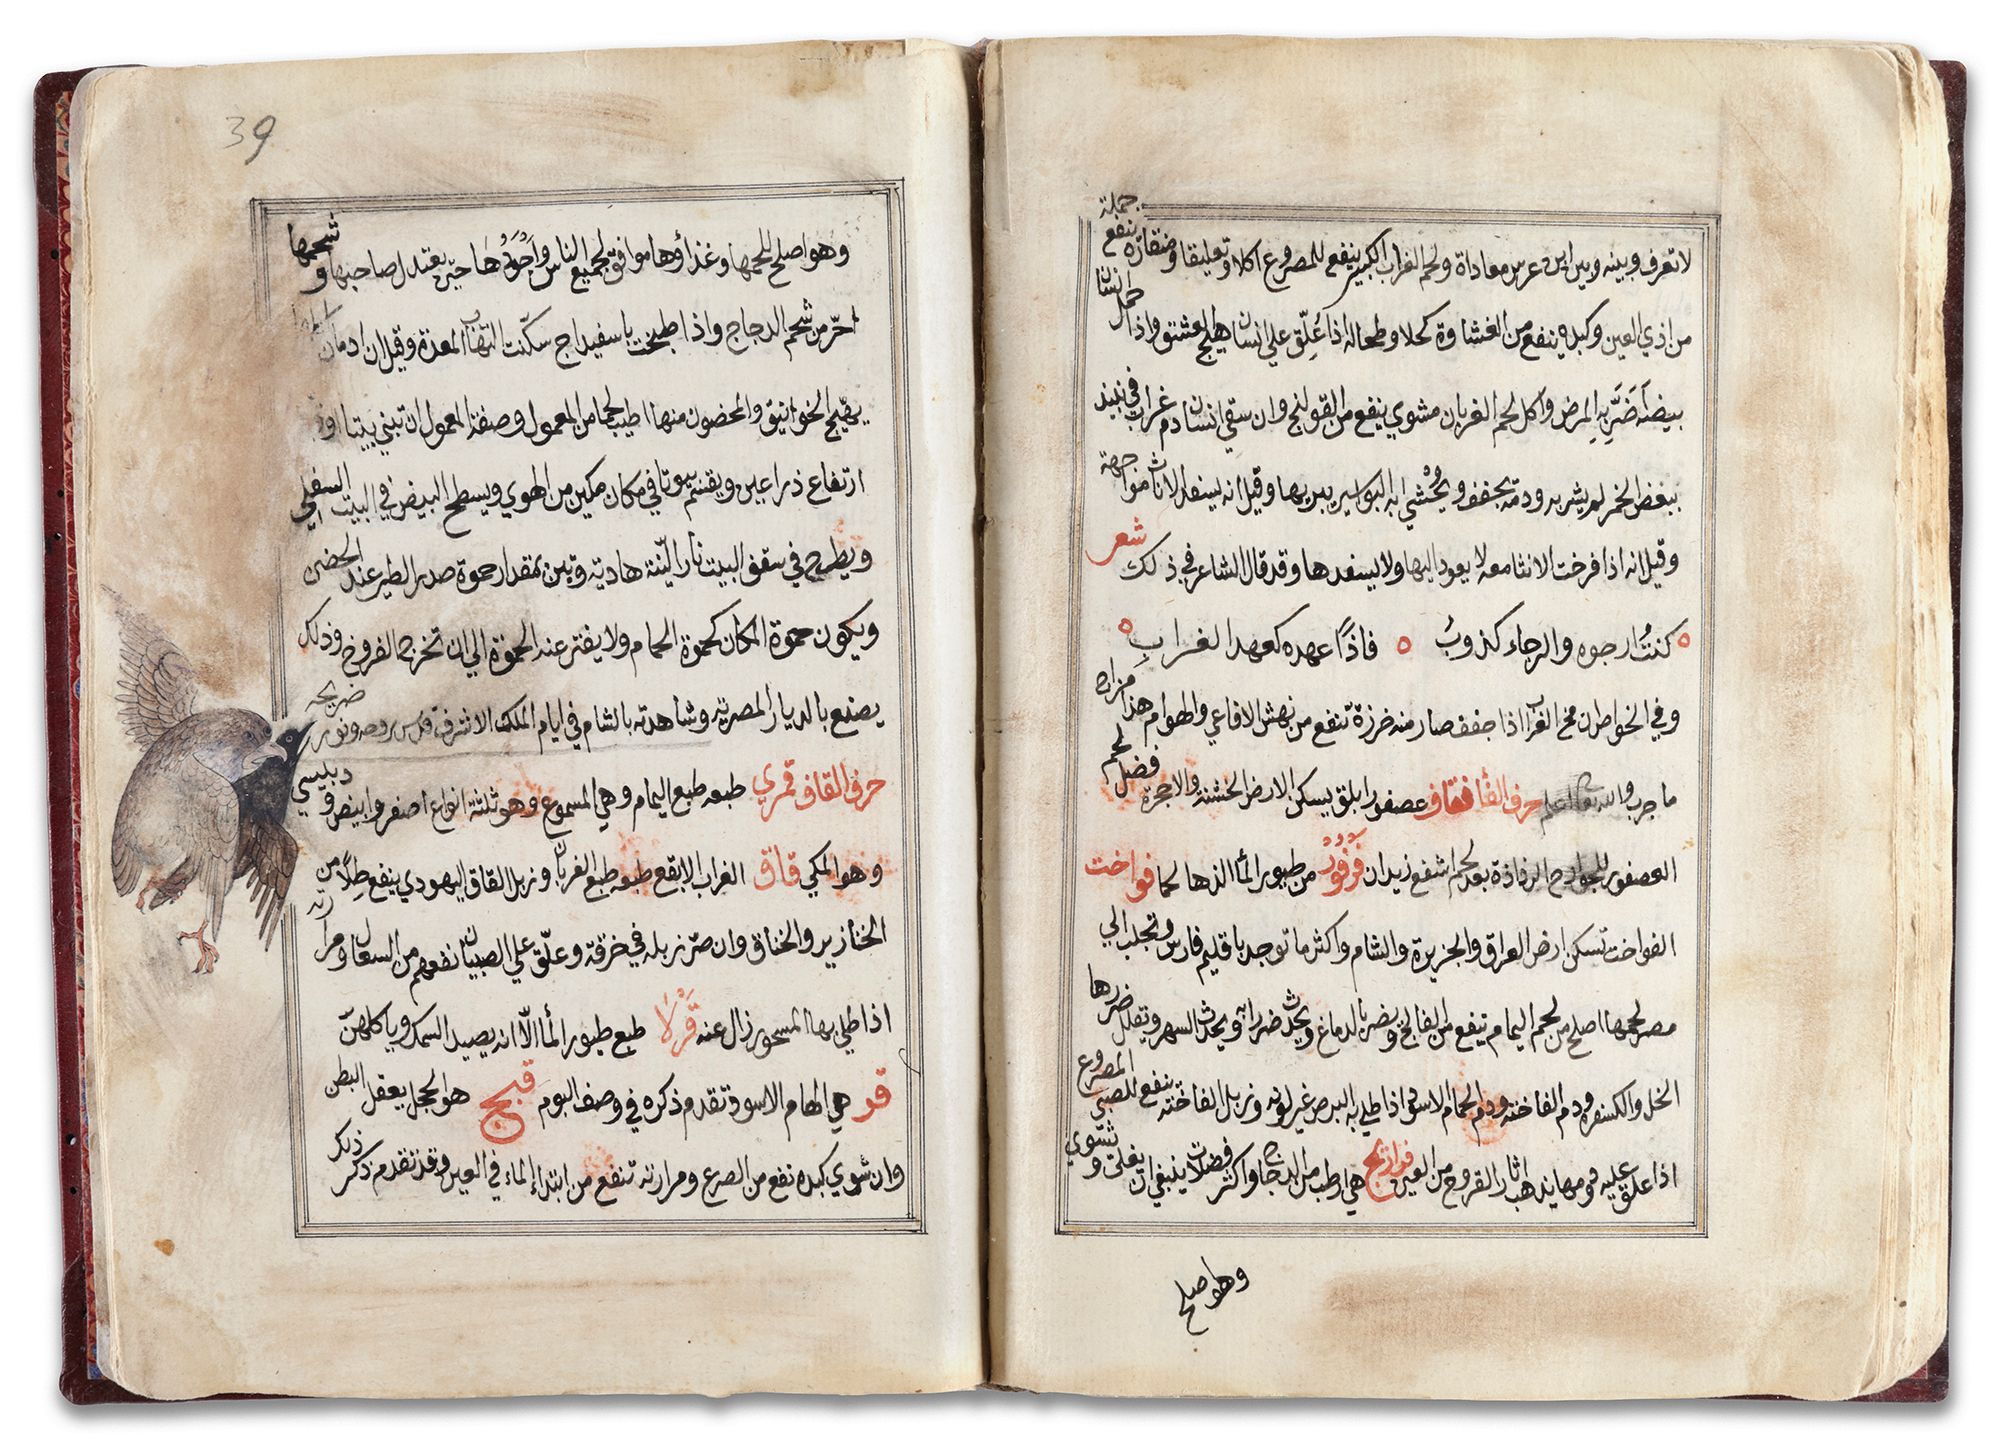 لا تعرف وبينه وبين ابن عرس معاداة ولحم الغراب الكبير ينفع للمصروع اكلا وتعليقا ومنقاره ينفع
جملة
من اذي العين وكبده ينفع من الغشاوة كحلا وطحاله اذا عُلّق علي انسان هيج العشق واذا
بيضه ضَرَّ به المرض واكل لحم الغربان مشوي ينفع من القولنج وان سقي انسان دم غراب في نبيذ
ببغض الخمر لم يشربه ودمه يجفف ويُحْشي به البواسير يبريها وقيل انه يسفد الاناث مواجهة
وقيل انه اذا فرخت الانثا معه لا يعود اليها ولا يسفدها وقد قال الشاعر في ذلك شعر
كنتُ ارجوه والرجاء كذوبُ فاذًا عهده كعهد الغرابِ
وفي الخواص ان مخ الغراب اذا جفف صار منه خرزة تنفع من نهش الافاعي والهوام هذا من
ما جرب والله اعلم حرف الفا عصفور ابلق يسكن الارض الخشنة والاجرة فضل لحم
العصفور للجوارح بعد لحم من طيور الما الذها لحما فواخت
الفواخت تسكن ارض العراق والجزيرة والشام واكثر ما توجد باقليم فارس وتجلب الي
مصر لحمها اصلح من لحم اليمام ينفع من الفالج ويضر بالدماغ ويحدث السهر وتقلل ضررها
الخل والكسفرة ودم الفاخته ودم الحمام الاسود اذا طلي به البرص غير لونه وزبل الفاخته ينفع للصبي المصروع
اذا علق عليه ومها يذهب اثار القروح من العين فراريج هي ارطب من الدجاج واكثر فضلات ينبغي ان يغلي وتشوي
وهو اصلح
39
وهو اصلح للحمها وغذاؤها موافق لجميع الناس واَجْوَدُها حين يعتدل صاحبها وشحمها
احرّ من شحم الدجاج واذا طبخت باسفيداج سكّنت التهاب المعدة وقيل ان ادمان
يهيّج الخوانيق والمحضون منها اطيب لحما من المعمول وصفة المعمول ان تبني بيتا
ارتفاع ذراعين ويقسم بيوتا في مكان مكين من الهوي ويسطح البيض في البيت السفلي
ويطرح في سقف البيت نار ليّنة هاديه وتبن بمقدار حموة صدر الطير عند الحضن
ويكون حموة المكان كحموة الحمام ولا يفتر عنه الحموة الي ان تخرج الفروج وذلك
يصنع بالديار المصرية وشاهدته بالشام في ايام الملك الاشرف قدس روحه ونور ضريحه
حرف القاف قمري طبعه طبع اليمام وهي المسموع وهو ثلثة انواع اصفر وابيض ودبليسي
وهو المكي قاق الغراب الابقع طبعه طبع الغربان وزبل القاق اليهودي ينفع طِلًا من
الخنازير والخناق وان صرّ زبله في خرقه وعلّق علي الصبيان نفعهم من السعال ومرارته
اذا طلي بها المسحور زال عنه قرلا طبع طيور الما الّا انه يصيد السمك وياكلهنّ
قر هي الهام الاسود تقدم ذكره في وصف البوم قبج هو الحجل يعقل البطن
وان شوي كبده نفع من الصرع ومرارته تنفع من ابتداء الماء في العين وقد تقدم ذكر ذلك